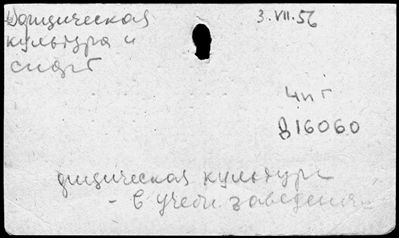 физическая
культура и
спорт
3.VII.56
чпГ
В16060
физическая культура
- в учебн. заведения